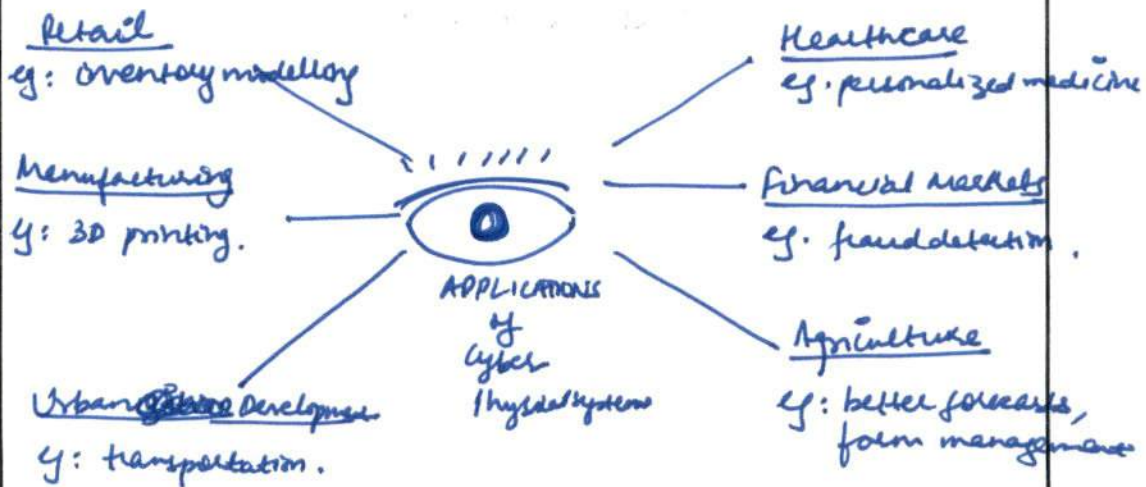 Retail
eg: inventory modelling
Manufacturing
eg: 3D printing.
Urban Development
eg: transportation.
APPLICATIONS
of
Cyber
Physical Systems
Healthcare
eg. personalized medicine
Financial Markets
eg. fraud detection.
Agriculture
eg: better forecasts,
farm management